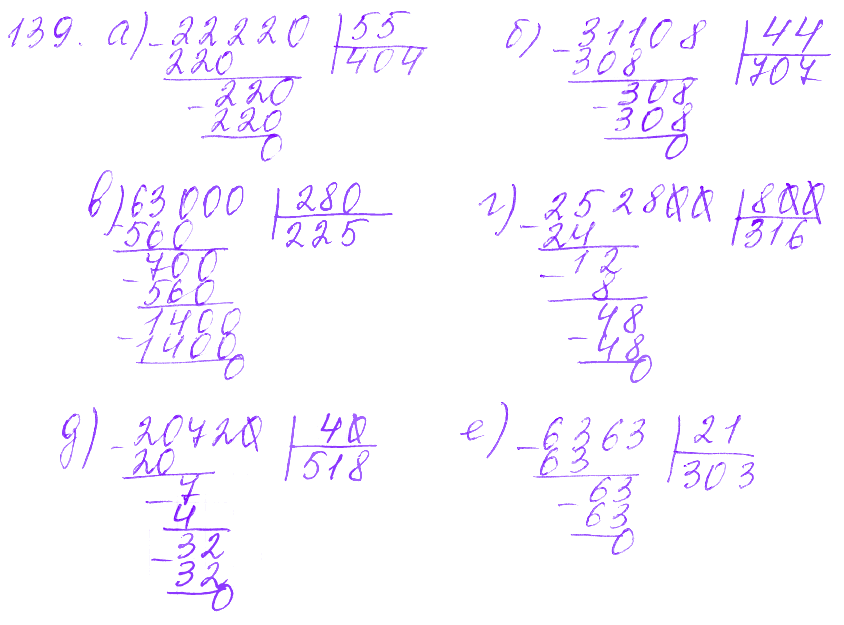 139. а) - 22220 | 55 б) - 31108 | 44
220 404 308 707
- 220 - 308
220 308
0 0
в) - 63000 | 280 г) - 252800 | 800
560 225 24 316
- 700 - 12
560 8
- 1400 - 48
1400 48
0 0
д) - 20720 | 40 е) - 6363 | 21
20 518 63 303
- 7 - 63
4 63
- 32 0
32
0